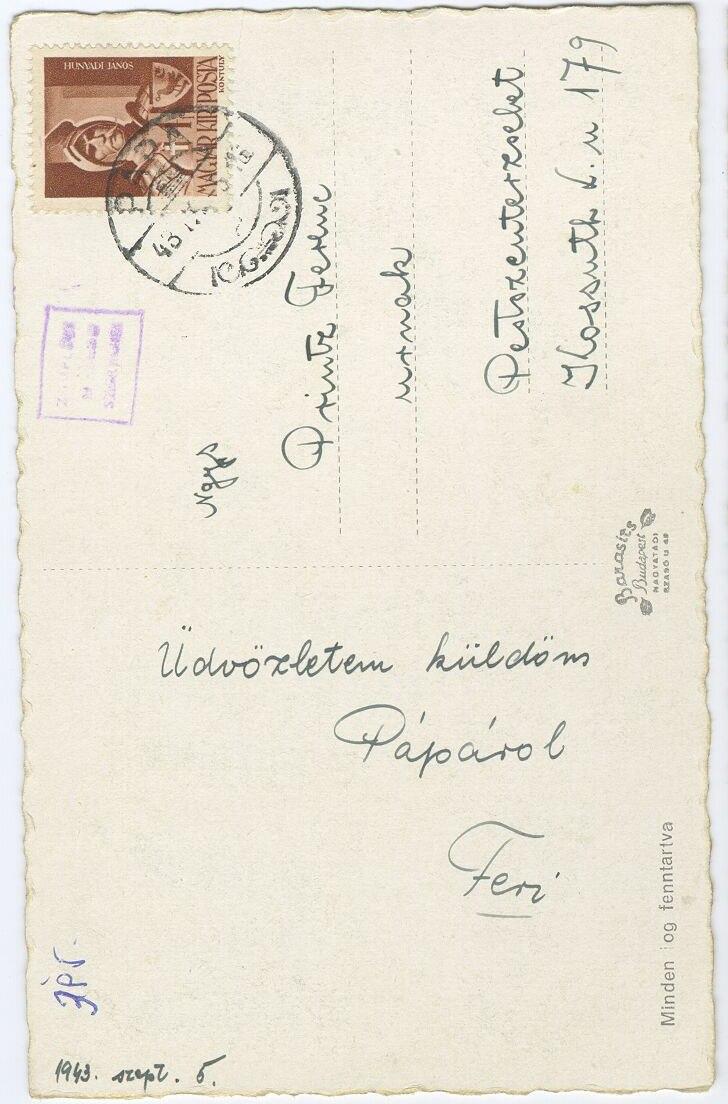 HUNYADI JÁNOS
MAGYAR KIR. POSTA
KONTULY
PÁPA
Ngys
Printz Ferenc
urnak
Pestszenterzsebet
Kossuth L. u 179
Barasits
Budapest
NAGYATÁDI
SZABÓ U 48
Üdvözletem küldöm
Pápárol
Feri
Minden jog fenntartva
1943. szept. 5.